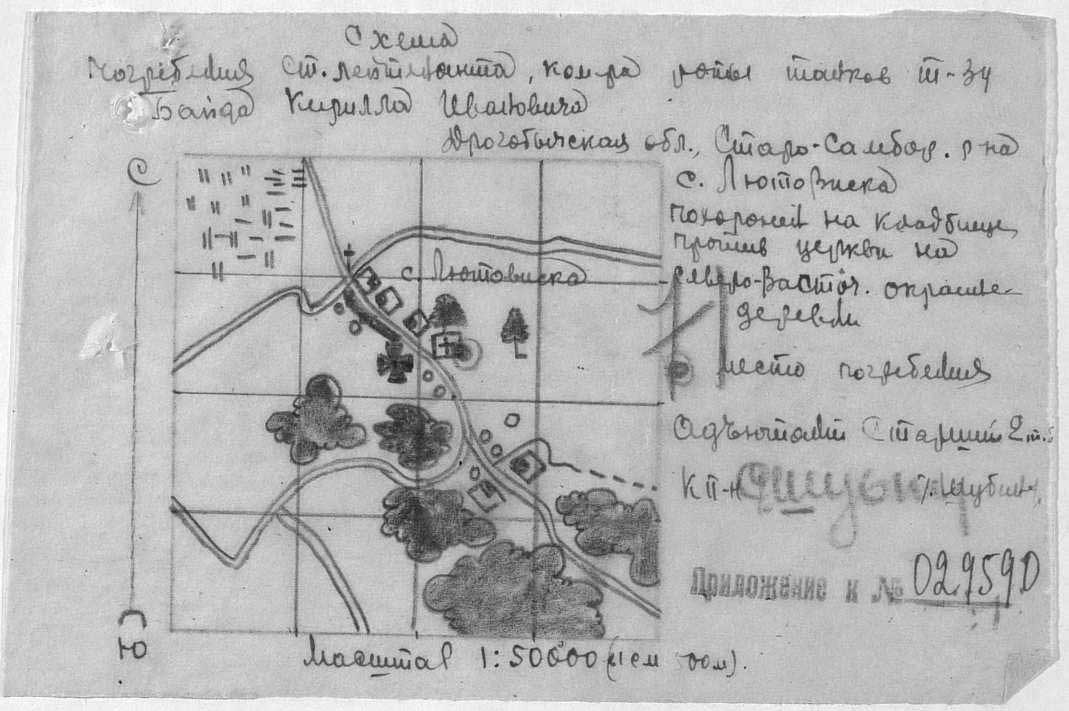 Схема
погребения ст. лейтенанта, ком-ра роты танков Т-34
Байда Кирилла Ивановича
Дрогобычская обл., Старо-Самбор. р-на
с. Лютовиска
похоронен на кладбище
против церкви на
северо-Восточ. окраине
деревни
место погребения
С
с. Лютовиска
Адъютант Старший 2
К-н /Шубин/
Приложение к № 029590
Ю
Масштаб 1:50000 (1 см 500м).